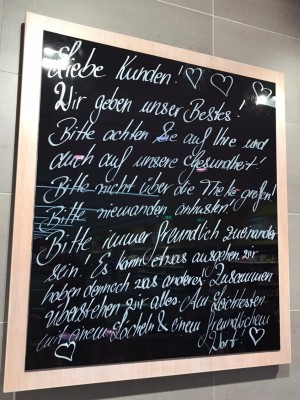 Liebe Kunden!
Wir geben unser Bestes!
Bitte achten Sie auf Ihre und
auch auf unsere Gesundheit!
Bitte nicht über die Theke greifen!
Bitte niemanden anhusten!
Bitte immer freundlich zueinander
sein! Es kann etwas ausgehen, wir
haben dennoch was anderes. Zusammen
überstehen wir alles. Am Leichtesten
mit einem Lächeln & einem freundlichem
Wort!